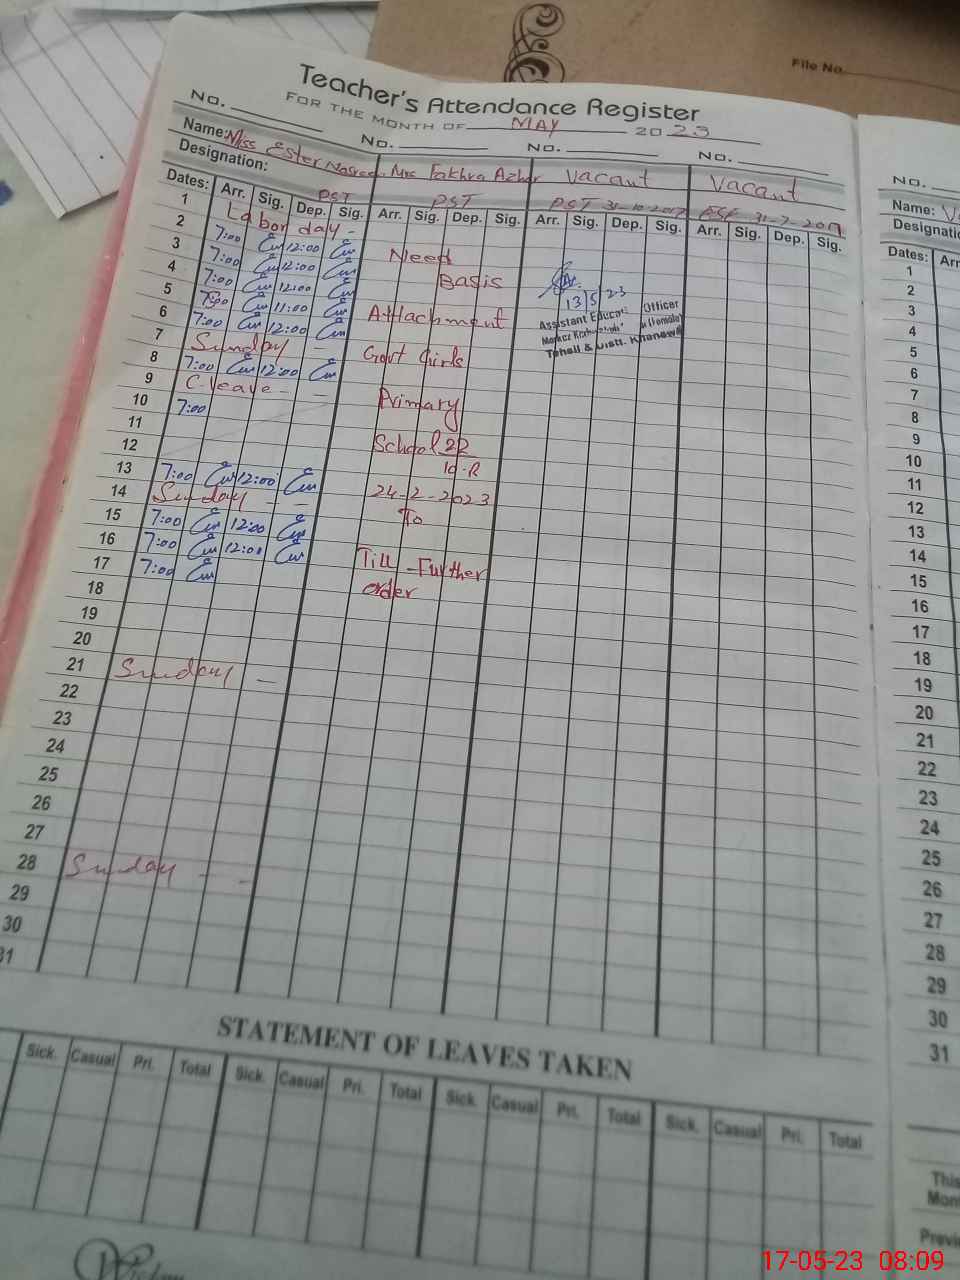 File No.
Teacher's Attendance Register
FOR THE MONTH OF MAY 2023
No. No. No. No.
Name: Miss Ester Nasreen Mrs Fakhra Azhar Vacant Vacant
Designation: PST PST PST 31-10-2017 ESE 31-7-2017
Dates: Arr. Sig. Dep. Sig. Arr. Sig. Dep. Sig. Arr. Sig. Dep. Sig. Arr. Sig. Dep. Sig.
1 Labor day -
2 7:00 12:00
3 7:00 12:00
4 7:00 12:00
5 7:00 11:00
6 7:00 12:00
7 Sunday
8 7:00 12:00
9 C-leave - -
10 7:00
11
12
13 7:00 12:00
14 Sunday - -
15 7:00 12:00
16 7:00 12:00
17 7:00
18
19
20
21 Sunday -
22
23
24
25
26
27
28 Sunday - -
29
30
31
Need
Basis
Attachment
Govt Girls
Primary
School 22
10-R
24-2-2023
To
Till -Further
order
13/5/23
Assistant Officer
Markaz
Tehsil & Distt. Khanewal
STATEMENT OF LEAVES TAKEN
Sick. Casual Pri. Total Sick. Casual Pri. Total Sick. Casual Pri. Total Sick. Casual Pri. Total
No.
Name:
Designatio
Dates: Arr
1
2
3
4
5
6
7
8
9
10
11
12
13
14
15
16
17
18
19
20
21
22
23
24
25
26
27
28
29
30
31
This
Mon
Previ
17-05-23 08:09